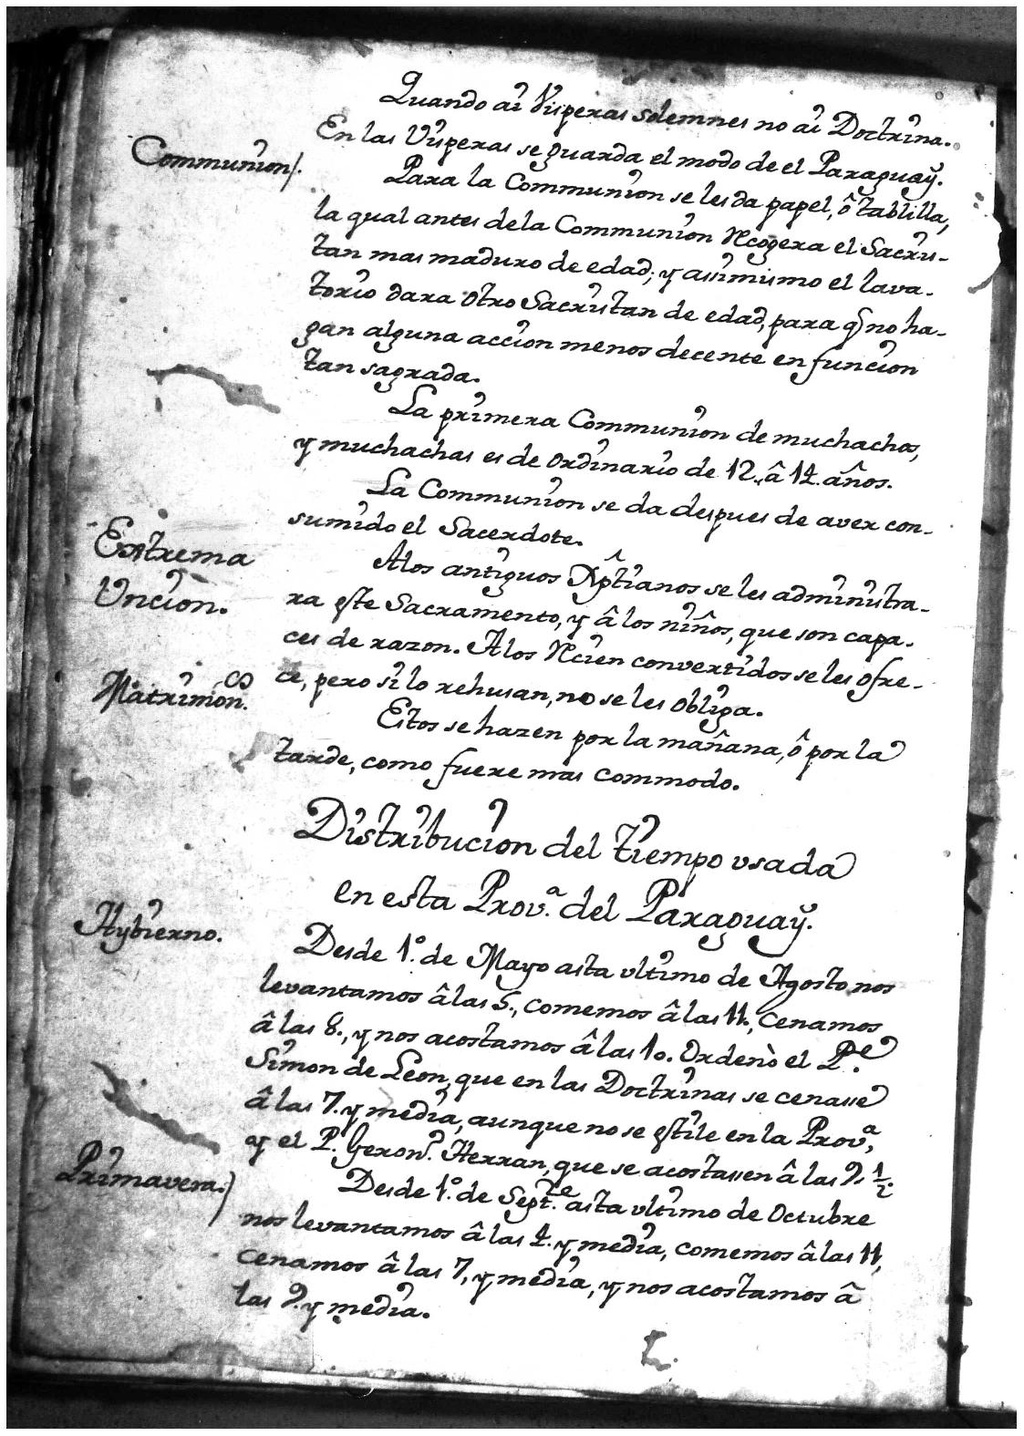 Quando ai Visperas solemnes no ai Doctrina.
En las Visperas se guarda el modo de el Paraguaÿ.
Communion/.
Para la Communion se les da papel, ô tablilla,
la qual antes dela Communion Recogera el Sacris-
tan mas maduro de edad; y assimismo el lava-
torio dara otro Sacristan de edad, para q̃ no ha-
gan alguna accion menos decente en funcion
tan sagrada.
La primera Communion de muchachos,
y muchachas es de ordinario de 12. â 14. años.
La Communion se da despues de aver con-
sumido el Sacerdote.
Extrema
Uncion.
Alos antiguos Xp̂tianos se les administra-
ra este Sacramento, y â los niños, que son capa-
ces de razon. Alos Recien convertidos se les ofre-
ce, pero si lo rehusan, no se les obliga.
Matrimon.os
Estos se hazen por la mañana, ô por la
tarde, como fuere mas commodo.
Distribucion del Tiempo usada
en esta Prov.a del Paraguaÿ.
Hybierno.
Desde 1.o de Mayo asta ultimo de Agosto nos
levantamos â las 5., comemos â las 11., cenamos
â las 8., y nos acostamos â las 10. Ordenò el P.e
Simon de Leon, que en las Doctrinas se cenasse
â las 7. y media, aunque no se estile en la Prov.a,
y el P. Geron.o Herran, que se acostassen â las 9. 1/2.
Primavera.)
Desde 1.o de Sept.re asta ultimo de Octubre
nos levantamos â las 4. y media, comemos â las 11,
cenamos â las 7, y media, y nos acostamos â
las 9. y media.